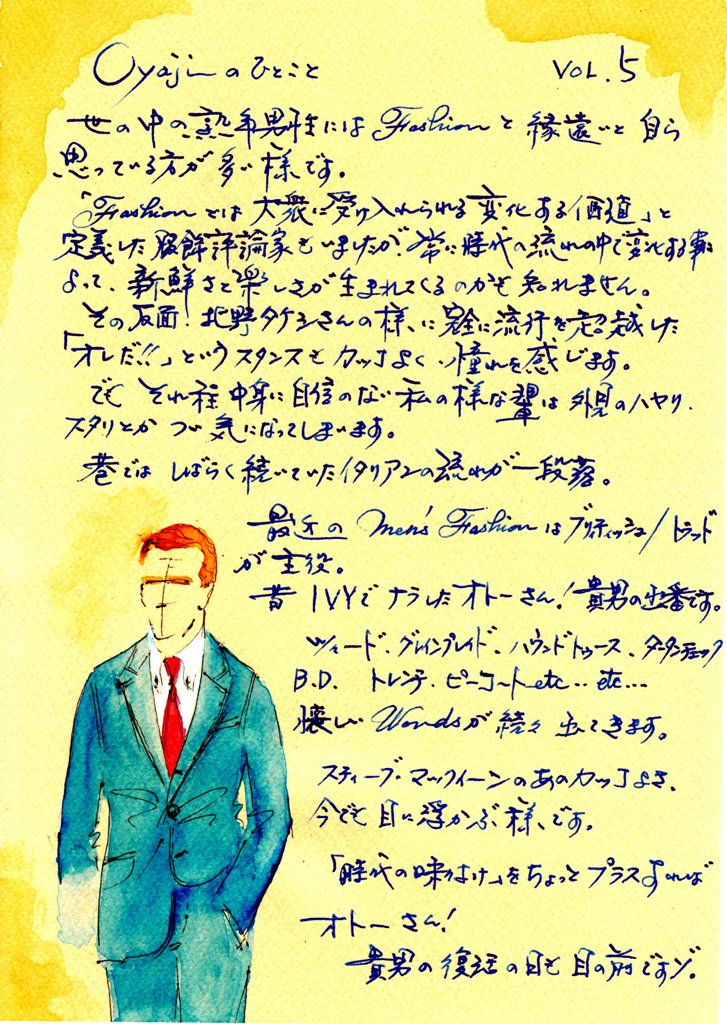 Oyajiのひとこと VOL.5
世の中の熟年男性には Fashionと縁遠いと自ら
思っている方が多い様です。
「Fashionとは大衆に受け入れられる変化ある価値」と
定義した服飾評論家もいましたが、常に時代の流れの中で変化する事に
よって、新鮮さと楽しさが生まれてくるのかも知れません。
その反面、北野タケシさんの様に完全に流行を超越した
「オレだ!!」というスタンスもカッコよく、憧れを感じます。
でも それ程中身に自信のない私の様な輩は外見のハヤリ、
スタリとか つい気になってしまいます。
巷では しばらく続いていたイタリアンの流れが一段落。
最近の Men's Fashionはブリティッシュ/トラッド
が主役。
昔 IVYでナラしたオトーさん!貴男の出番です。
ツィード、グレインプレイド、ハウンドトゥース、タータンチェック
B.D. トレンチ、ピーコート etc‥etc…
懐しい Wordsが続々出てきます。
スティーブ・マックィーンのあのカッコよさ、
今でも目に浮かぶ様です。
「時代の味つけ」をちょっとプラスすれば
オトーさん!
貴男の復活の日も目の前ですゾ。